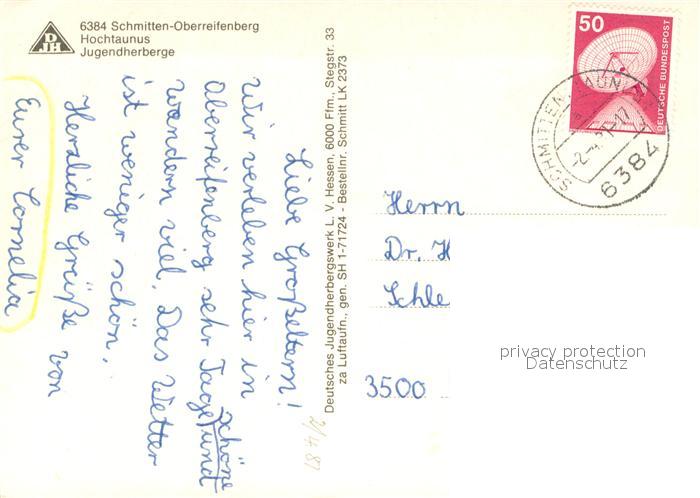 DJH
6384 Schmitten-Oberreifenberg
Hochtaunus
Jugendherberge
Liebe Großeltern!
Wir verleben hier in
Oberreifenberg sehr schöne Tage und
wandern viel. Das Wetter
ist weniger schön.
Herzliche Grüße von
Eurer Cornelia
2/4 81
Deutsches Jugendherbergswerk L. V. Hessen, 6000 Ffm., Stegstr. 33
za Luftaufn., gen. SH 1-71724 - Bestellnr. Schmitt LK 2373
50
DEUTSCHE BUNDESPOST
SCHMITTEN
6384
Herrn
Dr. H
Schle
3500
privacy protection
Datenschutz